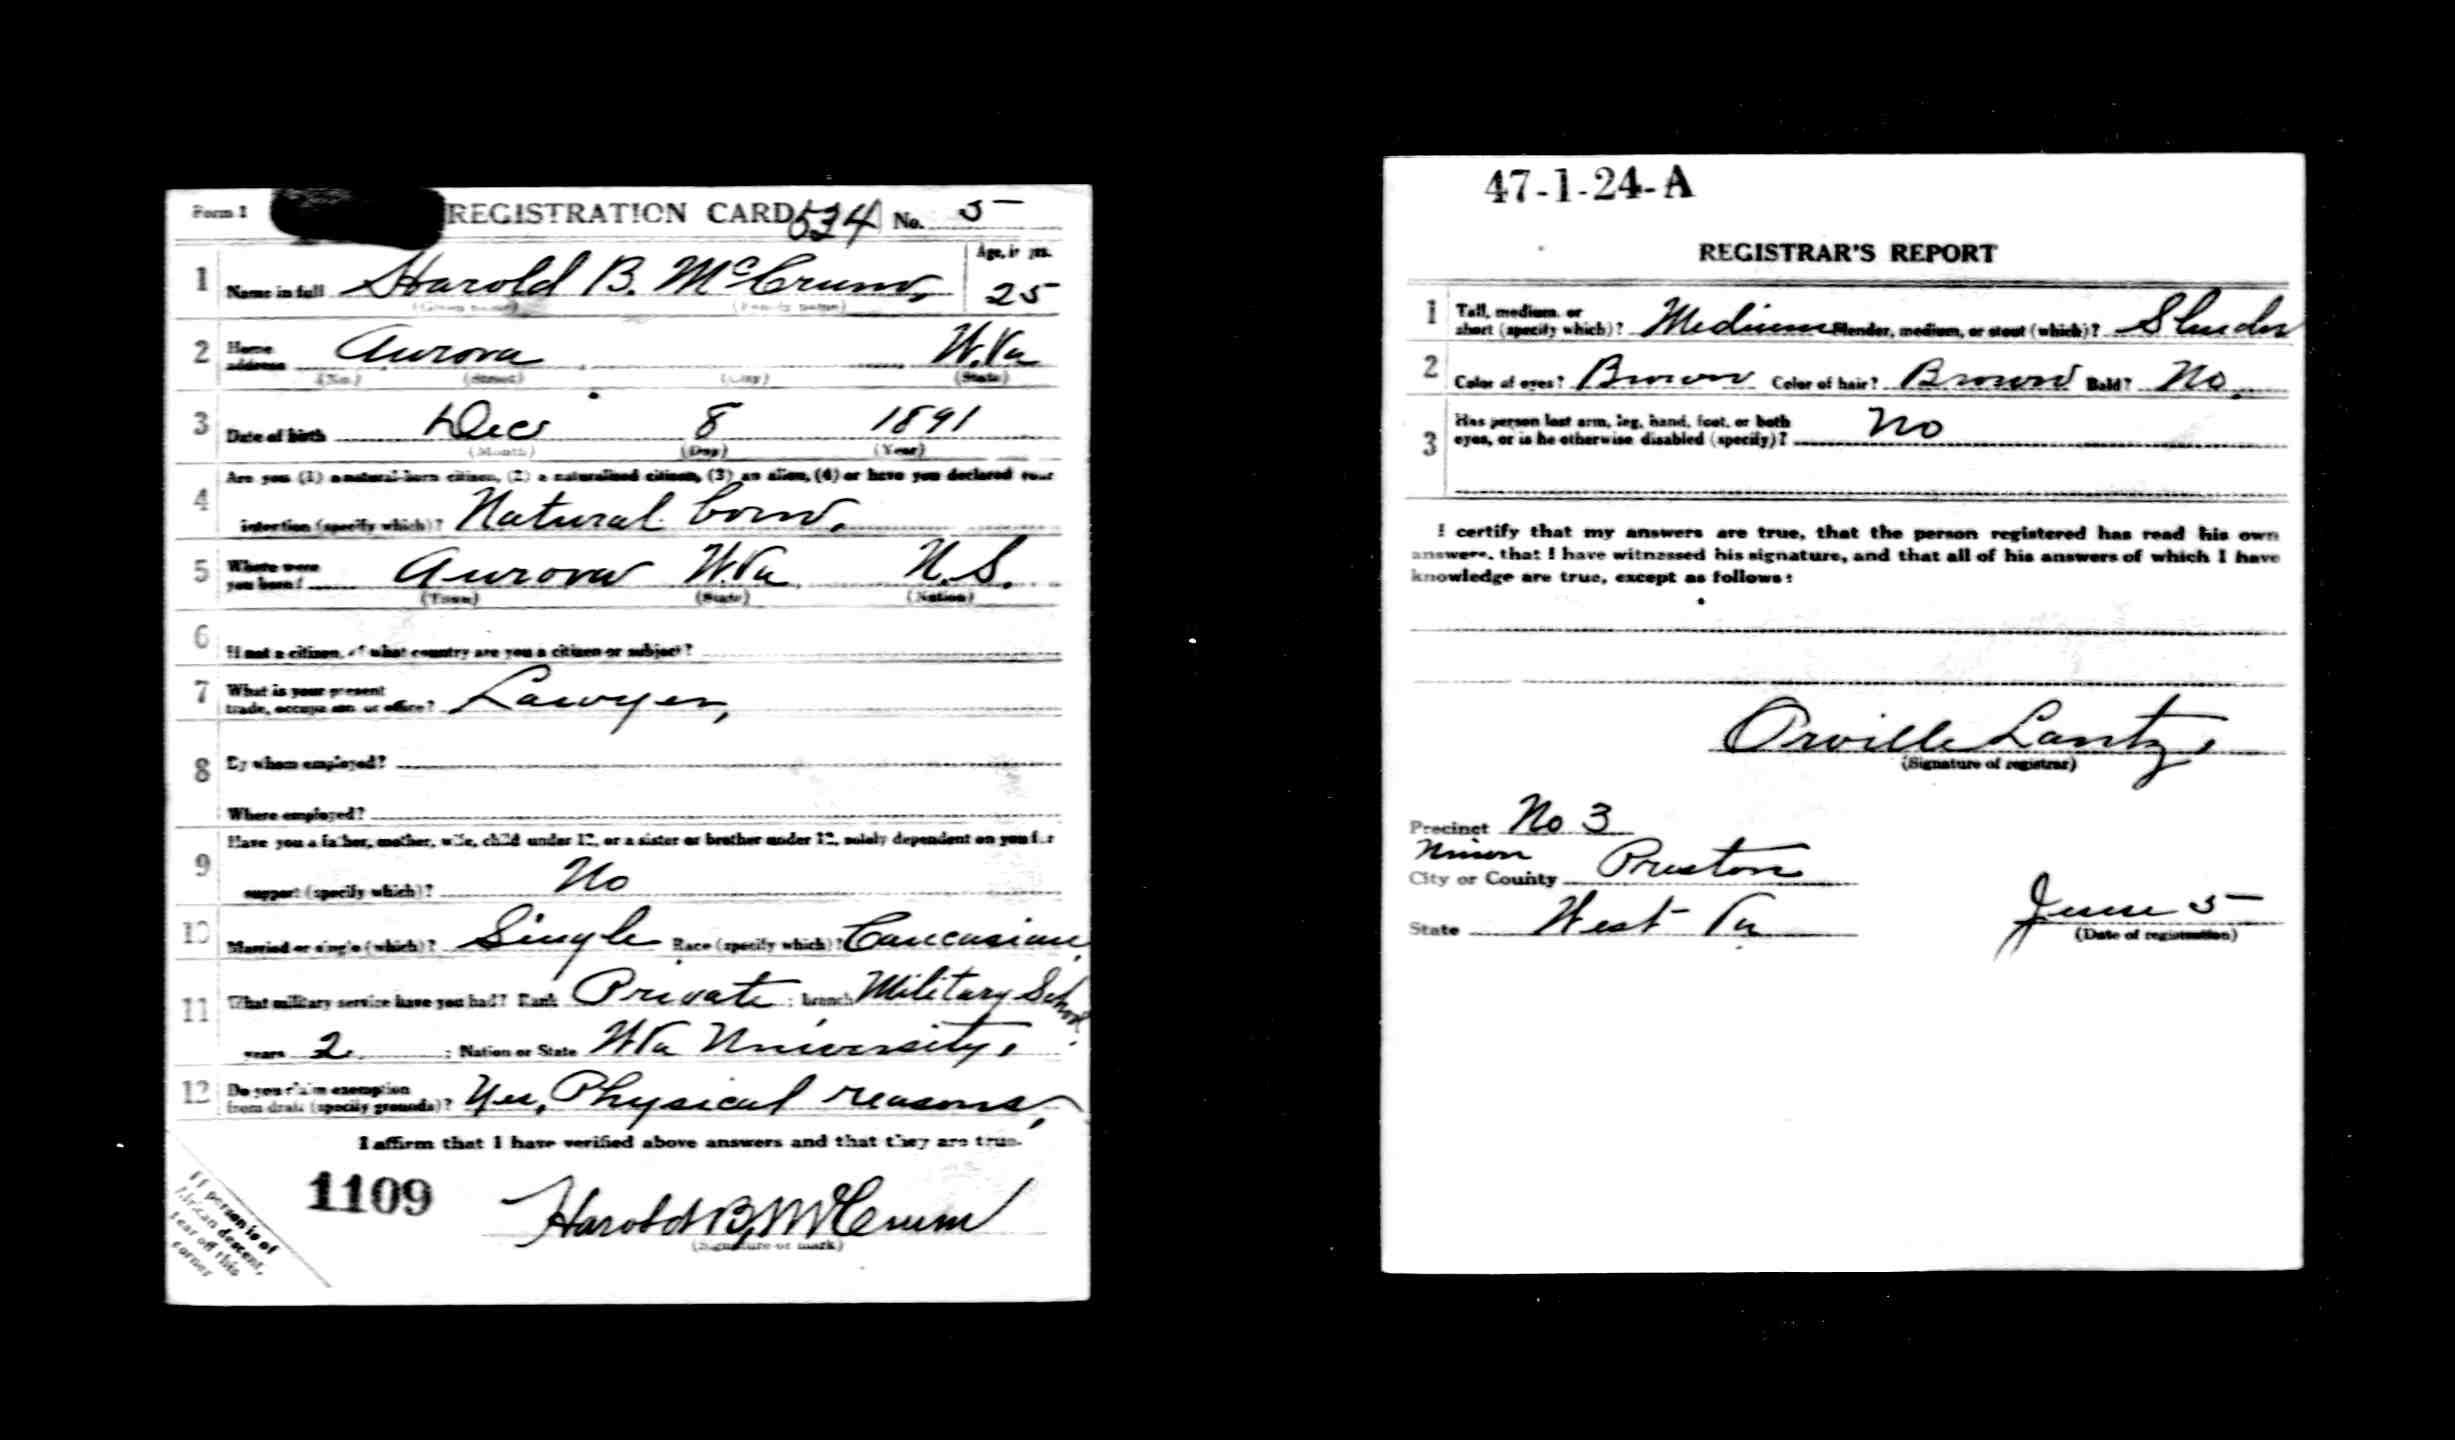 Form 1 REGISTRATION CARD 534 No. 5
1 Name in full Harold B. McCrum, Age, in yrs. 25
(Given name) (Family name)
2 Home address Aurora W.Va
(No.) (Street) (City) (State)
3 Date of birth Dec 8 1891
(Month) (Day) (Year)
4 Are you (1) a natural-born citizen, (2) a naturalized citizen, (3) an alien, (4) or have you declared your
intention (specify which)? Natural born.
5 Where were you born? Aurora W.Va. U.S.
(Town) (State) (Nation)
6 If not a citizen, of what country are you a citizen or subject?
7 What is your present trade, occupation, or office? Lawyer,
8 By whom employed?
Where employed?
9 Have you a father, mother, wife, child under 12, or a sister or brother under 12, solely dependent on you for
support (specify which)? No
10 Married or single (which)? Single Race (specify which)? Caucasian,
11 What military service have you had? Rank Private; branch Military School
years 2; Nation or State W Va University,
12 Do you claim exemption from draft (specify grounds)? Yes, Physical reasons,
I affirm that I have verified above answers and that they are true.
1109
Harold B. McCrum
(Signature or mark)
If person is of
African descent,
tear off this
corner
47-1-24-A
REGISTRAR'S REPORT
1 Tall, medium, or
short (specify which)? Medium Slender, medium, or stout (which)? Slender
2 Color of eyes? Brown Color of hair? Brown Bald? No.
3 Has person lost arm, leg, hand, foot, or both
eyes, or is he otherwise disabled (specify)? No
I certify that my answers are true, that the person registered has read his own
answers, that I have witnessed his signature, and that all of his answers of which I have
knowledge are true, except as follows:
Orville Lantz,
(Signature of registrar)
Precinct No 3
Union
City or County Preston
State West Va June 5
(Date of registration)